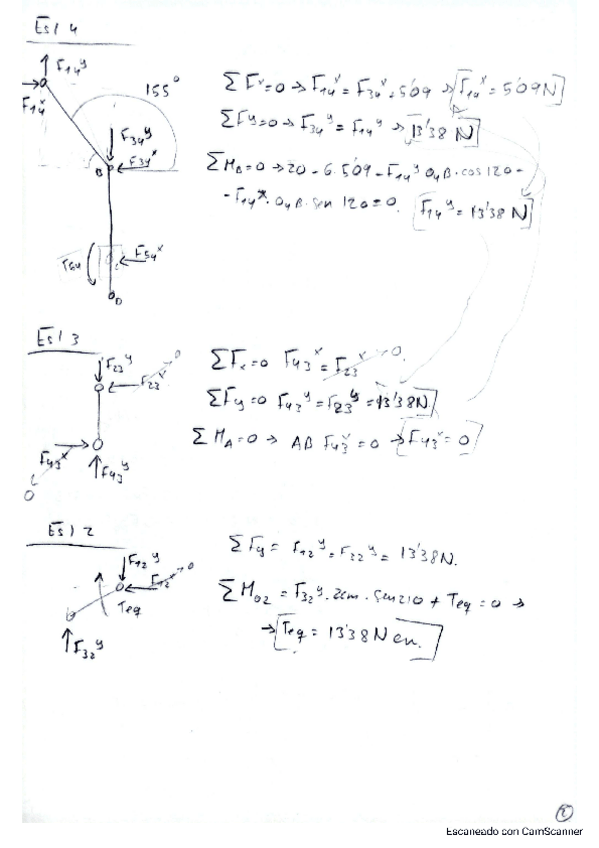 Esl 4
F14y
F14x
155°
F34y
F34x
B
T54
F54x
D
ΣFx=0 → F14x = F34x + 5'09 → F14x = 5'09N
ΣFy=0 → F34y = F14y → 13'38 N
ΣMB=0 → 20 - 6·5'09 - F14y O4B·cos 120 -
- F14x·O4B·sen 120=0. F14y = 13'38 N
Esl 3
F23y
F23x 0
F43x
F43y
0
ΣFx=0 F43x = F23x 0.
ΣFy=0 F43y = F23y = 13'38N
ΣMA=0 → AB F43x = 0 → F43x = 0
Esl 2
F12y
F12x 0
Teq
F32y
ΣFy = F12y = F32y = 13'38N.
ΣM02 = F32y·2cm·sen210 + Teq = 0 →
→ Teq = 13'38 N cm.
2
Escaneado con CamScanner